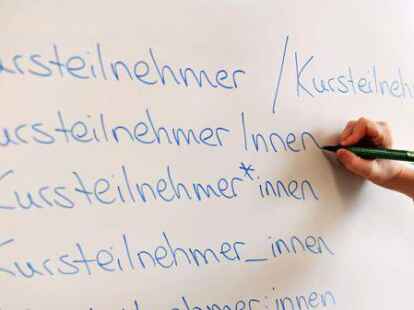 ursteilnehmer / Kursteilneh
ursteilnehmerInnen
Kursteilnehmer*innen
Kursteilnehmer_innen
Kursteilnehmer:innen